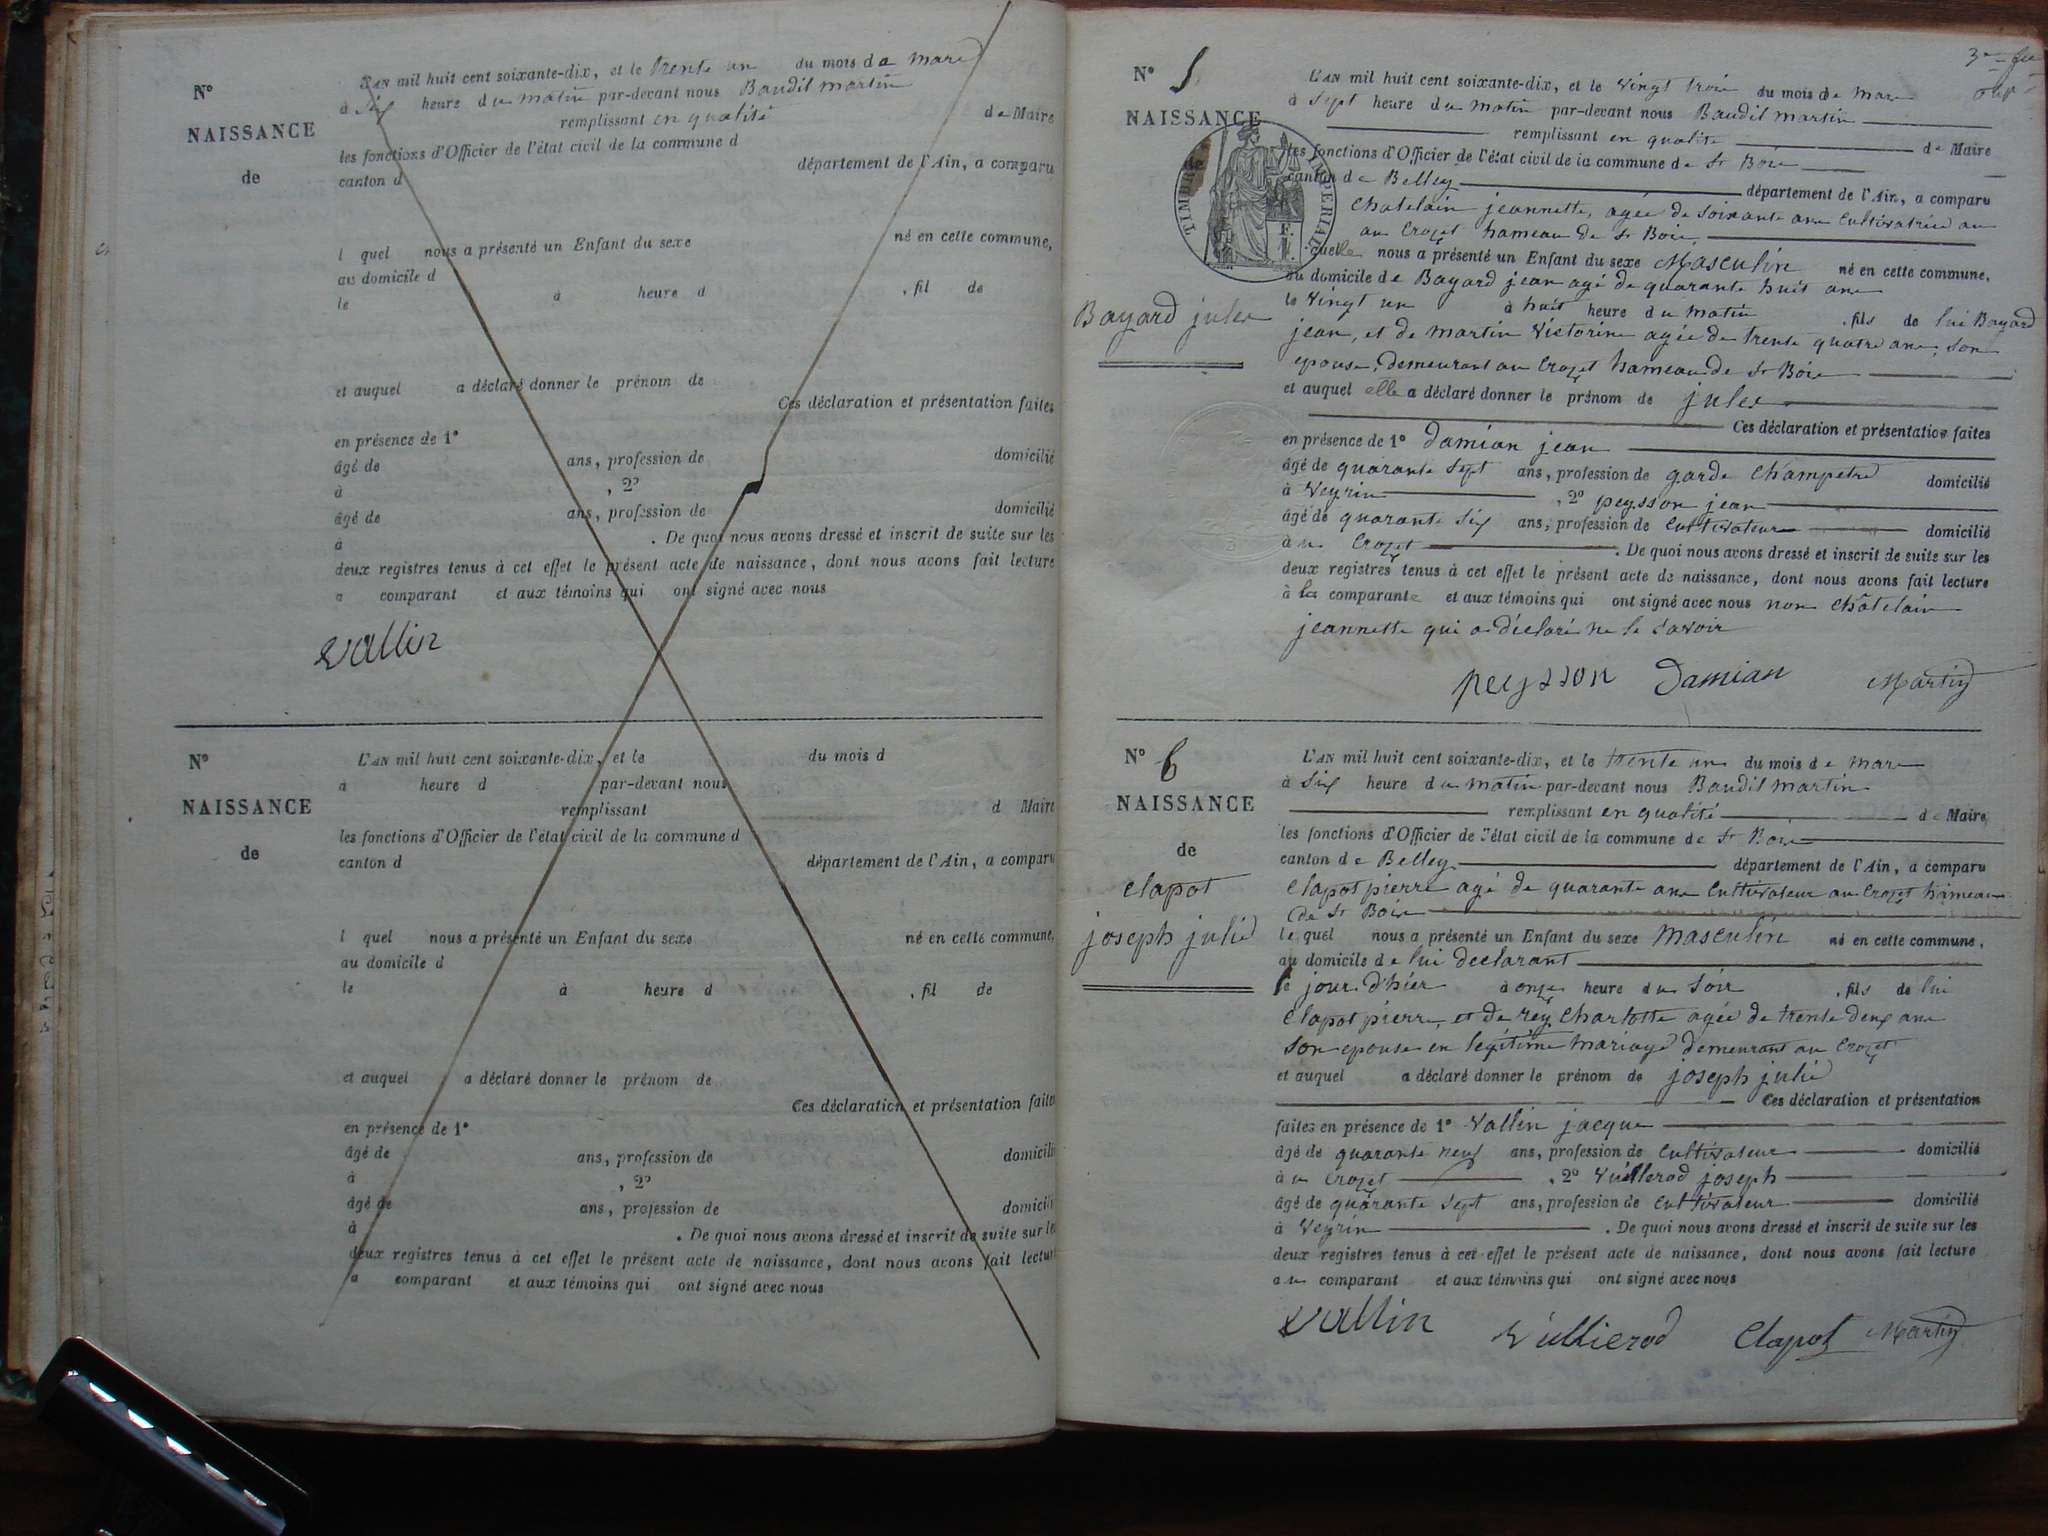 N°
NAISSANCE
de
L'AN mil huit cent soixante-dix, et le trente un du mois de mars
à six heure du matin par-devant nous Baudil martin
remplissant en qualité de Maire
les fonctions d'Officier de l'état civil de la commune d
canton d département de l'Ain, a comparu
l quel nous a présenté un Enfant du sexe né en cette commune,
au domicile d
le à heure d , fil de
et auquel a déclaré donner le prénom de
Ces déclaration et présentation faites
en présence de 1°
âgé de ans, profession de domicilié
à , 2°
âgé de ans, profession de domicilié
à . De quoi nous avons dressé et inscrit de suite sur les
deux registres tenus à cet effet le présent acte de naissance, dont nous avons fait lecture
a comparant et aux témoins qui ont signé avec nous
Vallin
N°
NAISSANCE
de
L'AN mil huit cent soixante-dix, et le du mois d
à heure d par-devant nous
remplissant d Maire
les fonctions d'Officier de l'état civil de la commune d
canton d département de l'Ain, a comparu
l quel nous a présenté un Enfant du sexe né en cette commune,
au domicile d
le à heure d , fil de
et auquel a déclaré donner le prénom de
Ces déclaration et présentation faites
en présence de 1°
âgé de ans, profession de domicilié
à , 2°
âgé de ans, profession de domicilié
à . De quoi nous avons dressé et inscrit de suite sur le
deux registres tenus à cet effet le présent acte de naissance, dont nous avons fait lectur
a comparant et aux témoins qui ont signé avec nous
N° 5
NAISSANCE
TIMBRE IMPERIAL
Bayard jules
L'AN mil huit cent soixante-dix, et le vingt trois du mois de mars
à sept heure du matin par-devant nous Baudil martin
remplissant en qualité de Maire
les fonctions d'Officier de l'état civil de la commune de St Bois
canton de Belley département de l'Ain, a comparu
Chatelain jeannette, agée de soixante ans Cultivatrice au
au Crozet hameau de St Bois
quelle nous a présenté un Enfant du sexe Masculin né en cette commune,
au domicile de Bayard jean agé de quarante huit ans
le vingt un à huit heure du matin , fils de lui Bayard
jean, et de martin Victorine agée de trente quatre ans, son
epouse, demeurant au Crozet hameau de St Bois
et auquel elle a déclaré donner le prénom de jules
Ces déclaration et présentation faites
en présence de 1° damian jean
âgé de quarante sept ans, profession de garde Champetre domicilié
à Veyrin , 2° peysson jean
âgé de quarante six ans, profession de Cultivateur domicilié
à u Crozet . De quoi nous avons dressé et inscrit de suite sur les
deux registres tenus à cet effet le présent acte de naissance, dont nous avons fait lecture
à la comparante et aux témoins qui ont signé avec nous non Châtelain
jeannette qui a déclaré ne le savoir
peysson Damian Martin
N° 6
NAISSANCE
de
Clapot
joseph julie
L'AN mil huit cent soixante-dix, et le trente un du mois de mars
à six heure du matin par-devant nous Baudil martin
remplissant en qualité de Maire
les fonctions d'Officier de l'état civil de la commune de St Bois
canton de Belley département de l'Ain, a comparu
Clapot pierre agé de quarante ans Cultivateur au Crozet hameau
de St Bois
le quel nous a présenté un Enfant du sexe Masculin né en cette commune,
au domicile de lui declarant
le jour d'hier à onze heure du soir , fils de lui
Clapot pierre, et de rey Charlotte agée de trente deux ans
son epouse en legitime mariage demeurant au Crozet
et auquel a déclaré donner le prénom de joseph julie
Ces déclaration et présentation
faites en présence de 1° Vallin jacque
âgé de quarante neuf ans, profession de Cultivateur domicilié
à u Crozet , 2° Vuillerod joseph
âgé de quarante sept ans, profession de Cultivateur domicilié
à Veyrin . De quoi nous avons dressé et inscrit de suite sur les
deux registres tenus à cet effet le présent acte de naissance, dont nous avons fait lecture
au comparant et aux témoins qui ont signé avec nous
Vallin Vullierod Clapot Martin